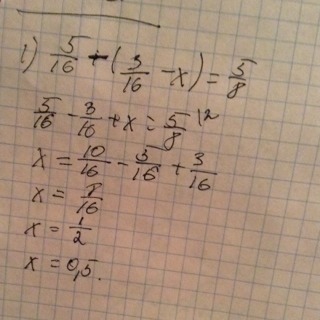 1) 5/16 - (3/16 - x) = 5/8
5/16 - 3/16 + x = 5/8 |2
x = 10/16 - 5/16 + 3/16
x = 8/16
x = 1/2
x = 0,5.